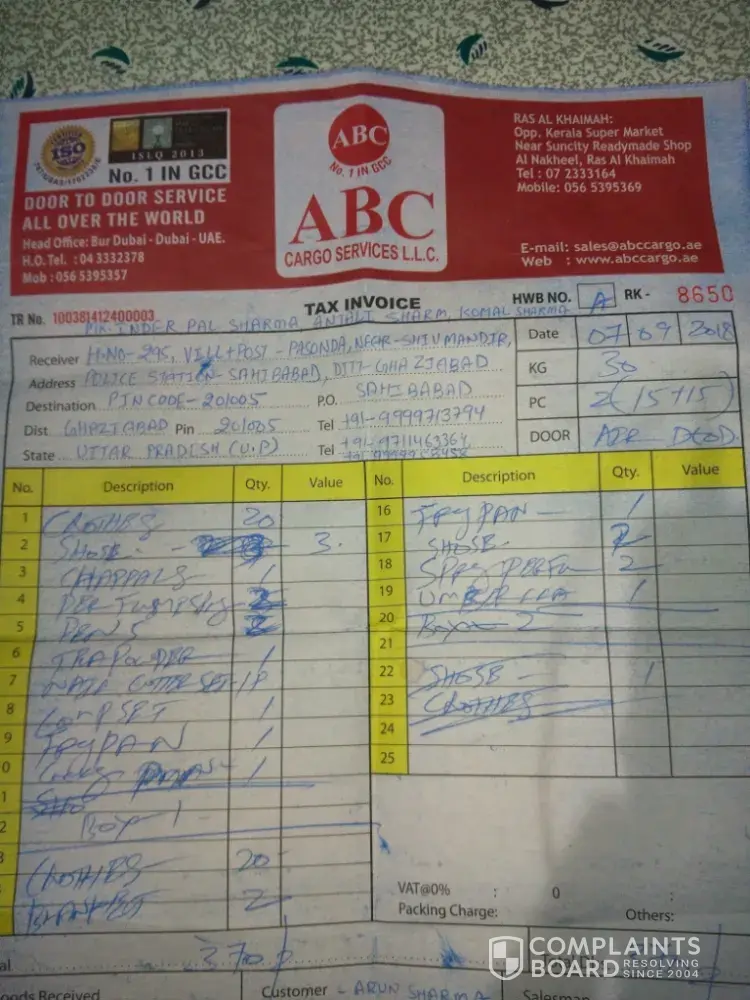 ISO
ISLQ 2013
No. 1 IN GCC
DOOR TO DOOR SERVICE
ALL OVER THE WORLD
Head Office: Bur Dubai - Dubai - UAE.
H.O. Tel. : 04 3332378
Mob : 056 5395357
ABC
No. 1 IN GCC
ABC
CARGO SERVICES L.L.C.
RAS AL KHAIMAH:
Opp. Kerala Super Market
Near Suncity Readymade Shop
Al Nakheel, Ras Al Khaimah
Tel : 07 2333164
Mobile: 056 5395369
E-mail: sales@abccargo.ae
Web : www.abccargo.ae
TR No. 100381412400003
TAX INVOICE
HWB NO. A RK - 8650
INDER PAL SHARMA ANJALI SHARM, KOMAL SHARMA
Receiver H.NO-295, VILL+POST-PASONDA, NEAR-SHIV MANDIR,
Address POLICE STATION-SAHIBABAD, DITT-GHAZIABAD
Destination PINCODE-201005 P.O. SAHIBABAD
Dist GHAZIABAD Pin 201005 Tel +91-9999713794
State UTTAR PRADESH (U.P) Tel +91-9711463364
Date 07 09 2018
KG 30
PC 2 (15+15)
DOOR AIR
No. Description Qty. Value
1 CLOTHES 20
2 SHOSE 3
3 CHAPPALS 1
4
5 PENS
6 1
7 NAIL CUTTER SET-1P
8 SET 1
9 FRYPAN 1
0 1
1
2 Box 1
3 CLOTHES 20
BLANKET 2
No. Description Qty. Value
16 FRYPAN - 1
17 SHOSE
18 2
19 1
20 Box - 2
21
22 SHOSE - 1
23 CLOTHES
24
25
VAT@0% : 0 :
Packing Charge: Others:
370
Customer - ARUN SHARMA
Salesman
Goods Received
COMPLAINTS
BOARD RESOLVING
SINCE 2004